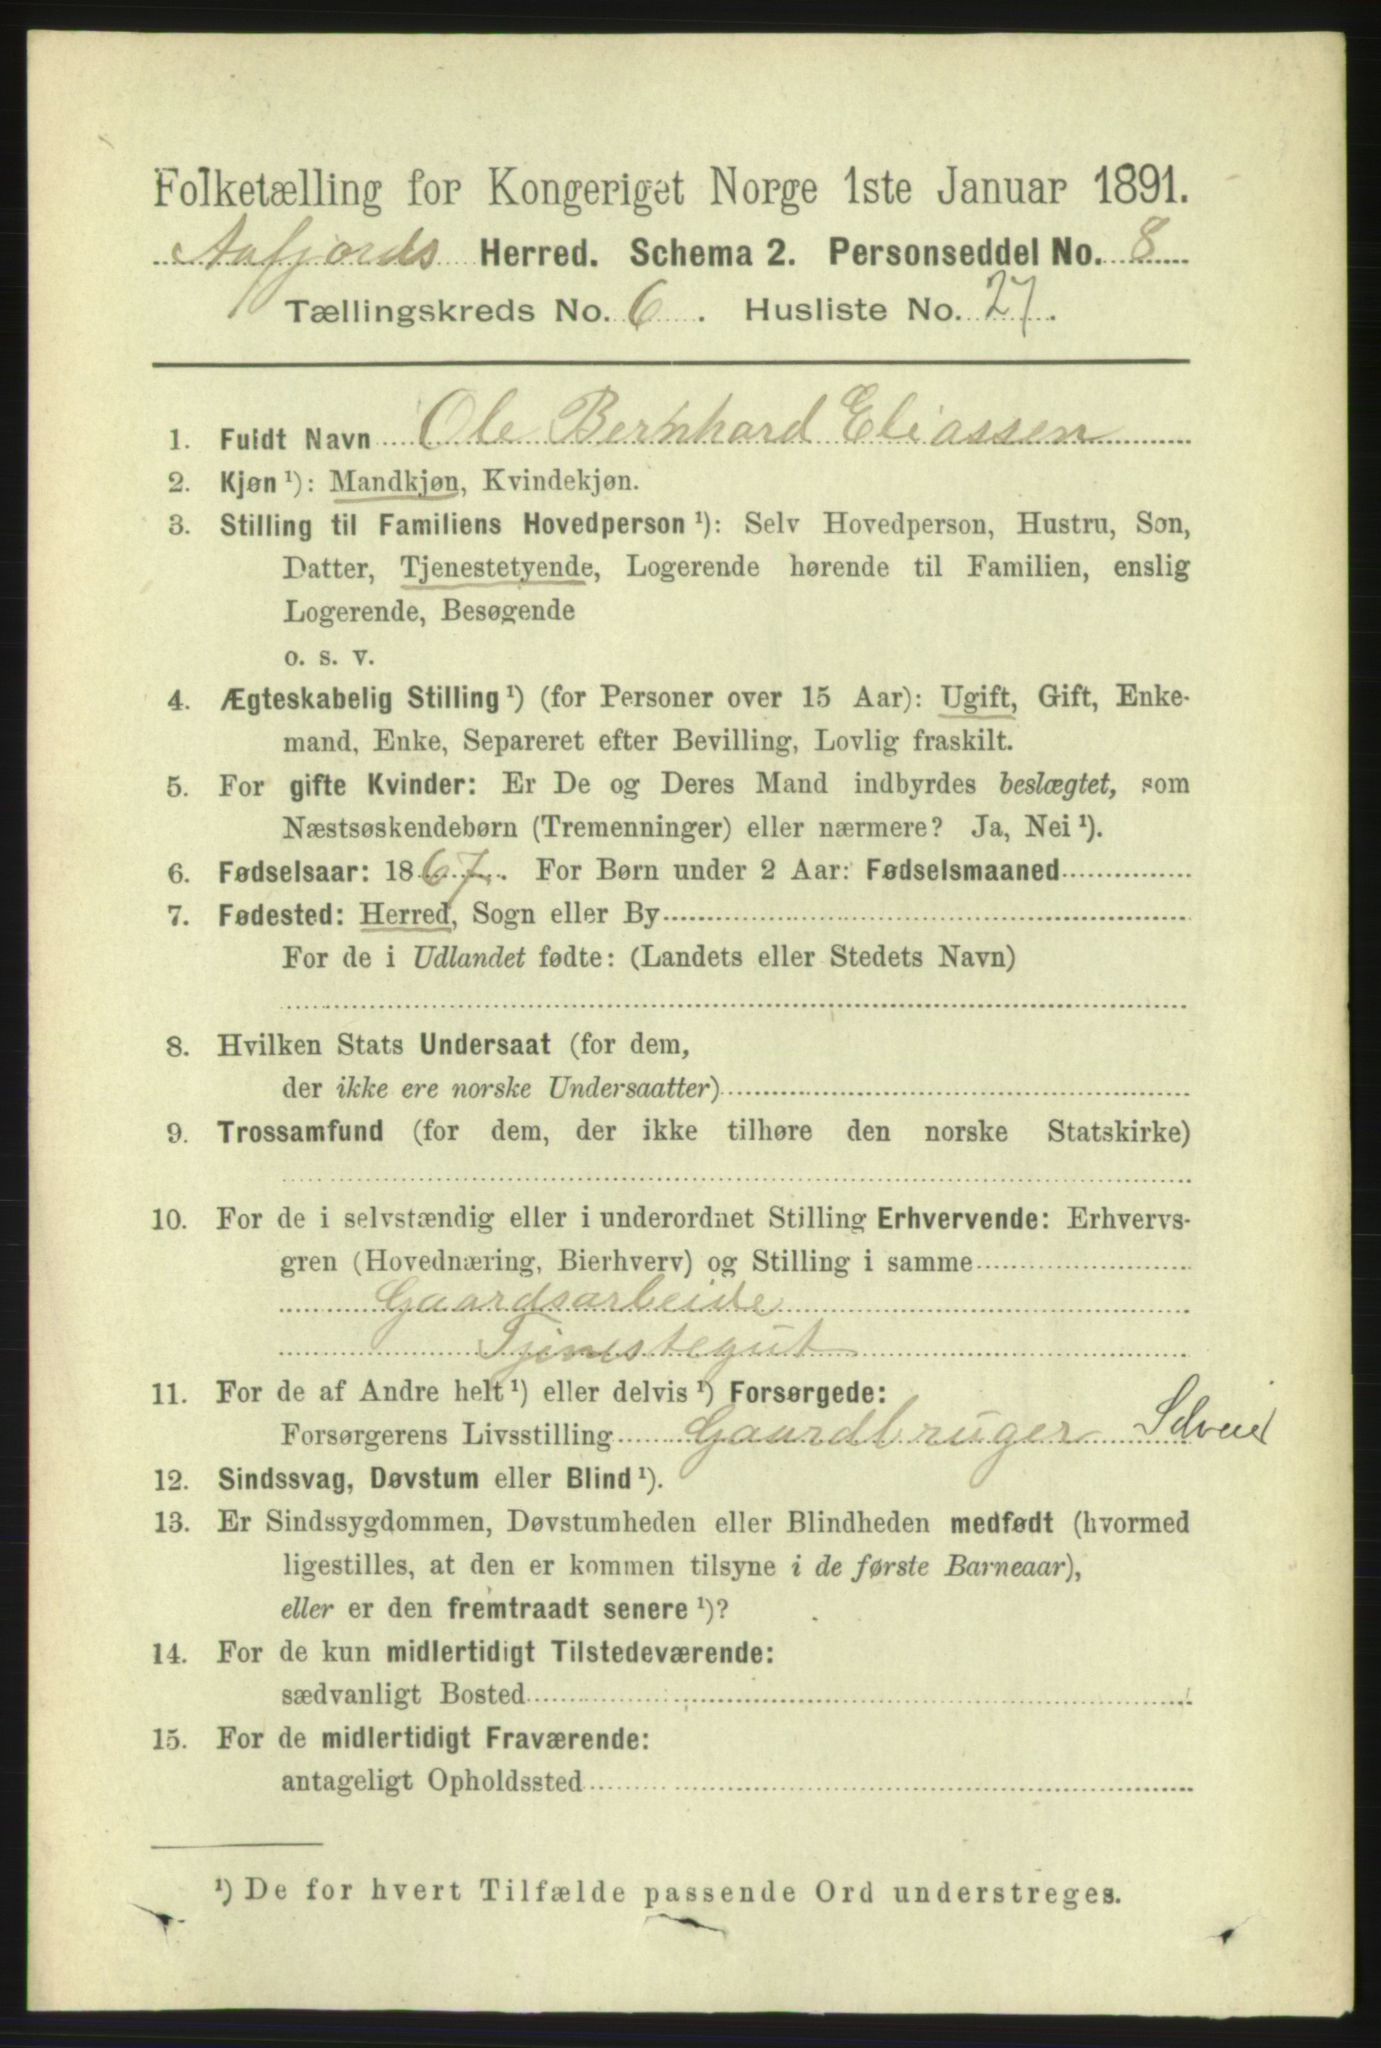 Folketælling for Kongeriget Norge 1ste Januar 1891.
Aafjords Herred. Schema 2. Personseddel No. 8
Tællingskreds No. 6. Husliste No. 27.
1. Fuldt Navn Ole Bernhard Eliassen
2. Kjøn ¹): Mandkjøn, Kvindekjøn.
3. Stilling til Familiens Hovedperson ¹): Selv Hovedperson, Hustru, Søn,
Datter, Tjenestetyende, Logerende hørende til Familien, enslig
Logerende, Besøgende
o. s. v.
4. Ægteskabelig Stilling ¹) (for Personer over 15 Aar): Ugift, Gift, Enke-
mand, Enke, Separeret efter Bevilling, Lovlig fraskilt.
5. For gifte Kvinder: Er De og Deres Mand indbyrdes beslægtet, som
Næstsøskendebørn (Tremenninger) eller nærmere? Ja, Nei ¹).
6. Fødselsaar: 1867. For Børn under 2 Aar: Fødselsmaaned
7. Fødested: Herred, Sogn eller By
For de i Udlandet fødte: (Landets eller Stedets Navn)
8. Hvilken Stats Undersaat (for dem,
der ikke ere norske Undersaatter)
9. Trossamfund (for dem, der ikke tilhøre den norske Statskirke)
10. For de i selvstændig eller i underordnet Stilling Erhvervende: Erhvervs-
gren (Hovednæring, Bierhverv) og Stilling i samme
Gaardsarbeide
Tjenestegut
11. For de af Andre helt ¹) eller delvis ¹) Forsørgede:
Forsørgerens Livsstilling Gaardbruger Selveier
12. Sindssvag, Døvstum eller Blind ¹).
13. Er Sindssygdommen, Døvstumheden eller Blindheden medfødt (hvormed
ligestilles, at den er kommen tilsyne i de første Barneaar),
eller er den fremtraadt senere ¹)?
14. For de kun midlertidigt Tilstedeværende:
sædvanligt Bosted
15. For de midlertidigt Fraværende:
antageligt Opholdssted
¹) De for hvert Tilfælde passende Ord understreges.